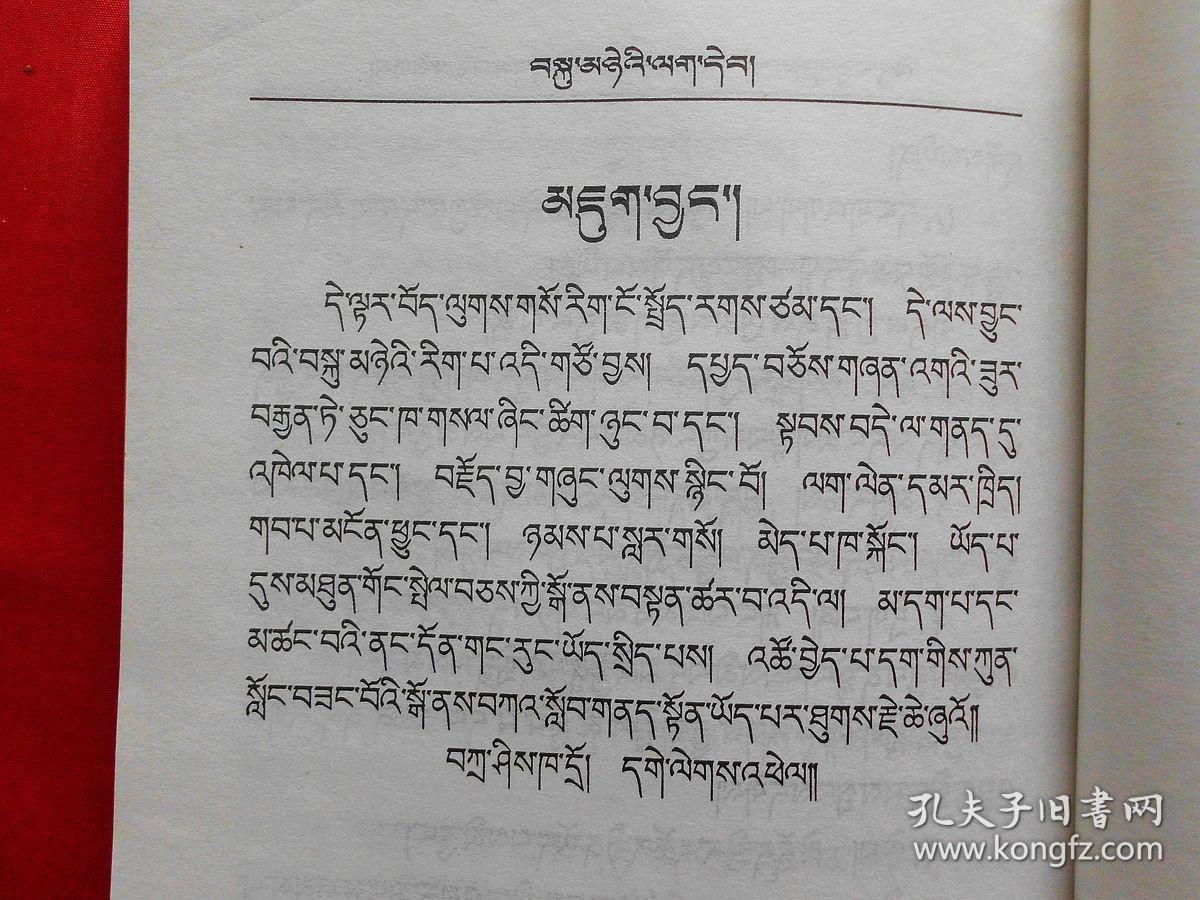 བསྐུ་མཉེའི་ལག་དེབ།
མཇུག་བྱང་།
དེ་ལྟར་བོད་ལུགས་གསོ་རིག་ངོ་སྤྲོད་རགས་ཙམ་དང་། དེ་ལས་བྱུང་
བའི་བསྐུ་མཉེའི་རིག་པ་འདི་གཙོ་བྱས། དཔྱད་བཅོས་གཞན་འགའི་ཟུར་
བརྒྱན་ཏེ་ཅུང་ཁ་གསལ་ཞིང་ཚིག་ཉུང་བ་དང་། སྟབས་བདེ་ལ་གནད་དུ་
འཁེལ་པ་དང་། བརྗོད་བྱ་གཞུང་ལུགས་སྙིང་བོ། ལག་ལེན་དམར་ཁྲིད།
གབ་པ་མངོན་ཕྱུང་དང་། ཉམས་པ་སླར་གསོ། མེད་པ་ཁ་སྐོང་། ཡོད་པ་
དུས་མཐུན་གོང་སྤེལ་བཅས་ཀྱི་སྒོ་ནས་བསྟན་ཚར་བ་འདི་ལ། མ་དག་པ་དང་
མ་ཚང་བའི་ནང་དོན་གང་རུང་ཡོད་སྲིད་པས། འཚོ་བྱེད་པ་དག་གིས་ཀུན་
སློང་བཟང་བོའི་སྒོ་ནས་བཀའ་སློབ་གནད་སྟོན་ཡོད་པར་ཐུགས་རྗེ་ཆེ་ཞུའོ།།
བཀྲ་ཤིས་ཁ་དྲོ། དགེ་ལེགས་འཕེལ།།
孔夫子旧书网
www.kongfz.com